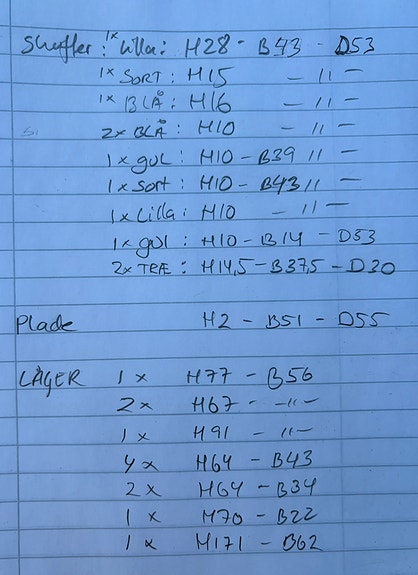 Skuffer: 1x Lilla: H28 - B43 - D53
1x SORT: H15 - 11 -
1x BLÅ: H16 - 11 -
2x BLÅ: H10 - 11 -
1x gul: H10 - B39 11 -
1x SORT: H10 - B43 11 -
1x Lilla: H10 - 11 -
1x gul: H10 - B14 - D53
2x TRÆ: H14,5 - B37,5 - D30
Plade H2 - B51 - D55
LÅGER 1x H77 - B56
2x H67 - 11 -
1x H91 - 11 -
4x H64 - B43
2x H64 - B34
1x H70 - B22
1x H171 - B62